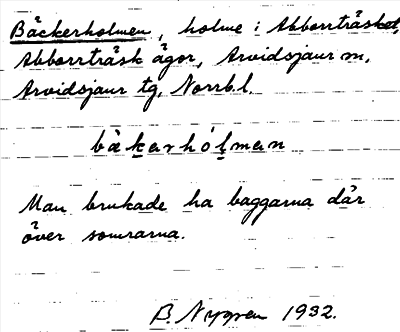 Bäckerholmen, holme i Abborrträsket,
Abborrträsk ägor, Arvidsjaur sn,
Arvidsjaur tg, Norrb. l.
bàkarhól̥man
Man brukade ha baggarna där
över somrarna.
B. Nygren 1932.